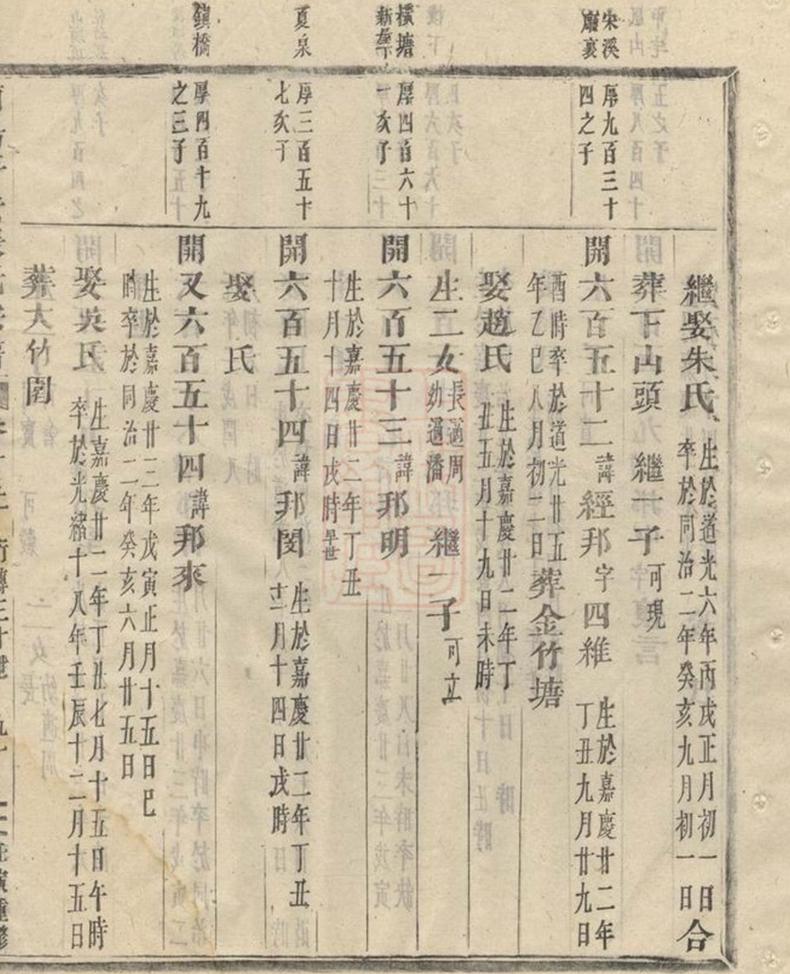 繼娶朱氏 生於道光六年丙戌正月初一日 卒於同治二年癸亥九月初一日 合
葬下山頭 繼一子 可現
朱溪 廟裏
厚九百三十四之子
開六百五十二 諱 經邦 字 四維 生於嘉慶廿二年丁丑九月廿九日
酉時卒於道光廿五年乙巳八月初二日 葬金竹塘
娶趙氏 生於嘉慶廿二年丁丑五月十九日未時
生二女 長適周 幼適潘 繼一子 可立
橫塘
厚四百六十一亥子
開六百五十三 諱 邦明
生於嘉慶廿二年丁丑十月十四日戌時 早世
夏泉
厚三百五十七亥子
開六百五十四 諱 邦閔 生於嘉慶廿二年丁丑十二月十四日戌時
娶 氏
鎮橋
厚四百十九之三子
開又六百五十四 諱 邦來
生於嘉慶廿三年戊寅正月十五日巳時卒於同治二年癸亥六月廿五日
娶吳氏 生嘉慶廿二年丁丑七月十五日午時 卒於光緒十八年壬辰十二月十五日
葬大竹園